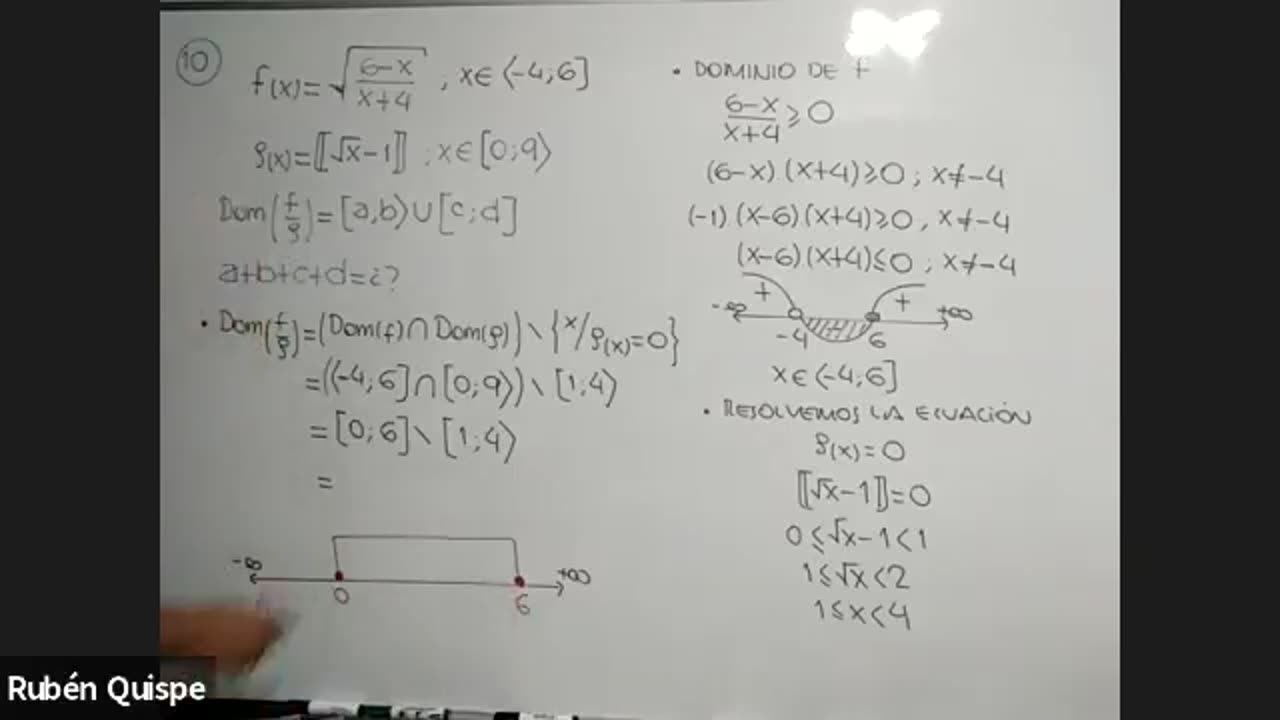 10
f(x)=√((6-x)/(x+4)) , x∈⟨-4;6]
g(x)=⟦√x-1⟧ ; x∈[0;9⟩
Dom(f/g)=[a,b⟩∪[c;d]
a+b+c+d=¿?
• Dom(f/g)=(Dom(f)∩Dom(g))\{x/g(x)=0}
=(⟨-4;6]∩[0;9⟩)\[1;4⟩
=[0;6]\[1;4⟩
=
-∞ 0 6 +∞
• DOMINIO DE f
(6-x)/(x+4)≥0
(6-x).(x+4)≥0 ; x≠-4
(-1).(x-6)(x+4)≥0 , x≠-4
(x-6)(x+4)≤0 ; x≠-4
-∞ + -4 6 + +∞
x∈⟨-4;6]
• RESOLVEMOS LA ECUACIÓN
g(x)=0
⟦√x-1⟧=0
0≤√x-1<1
1≤√x<2
1≤x<4
Rubén Quispe